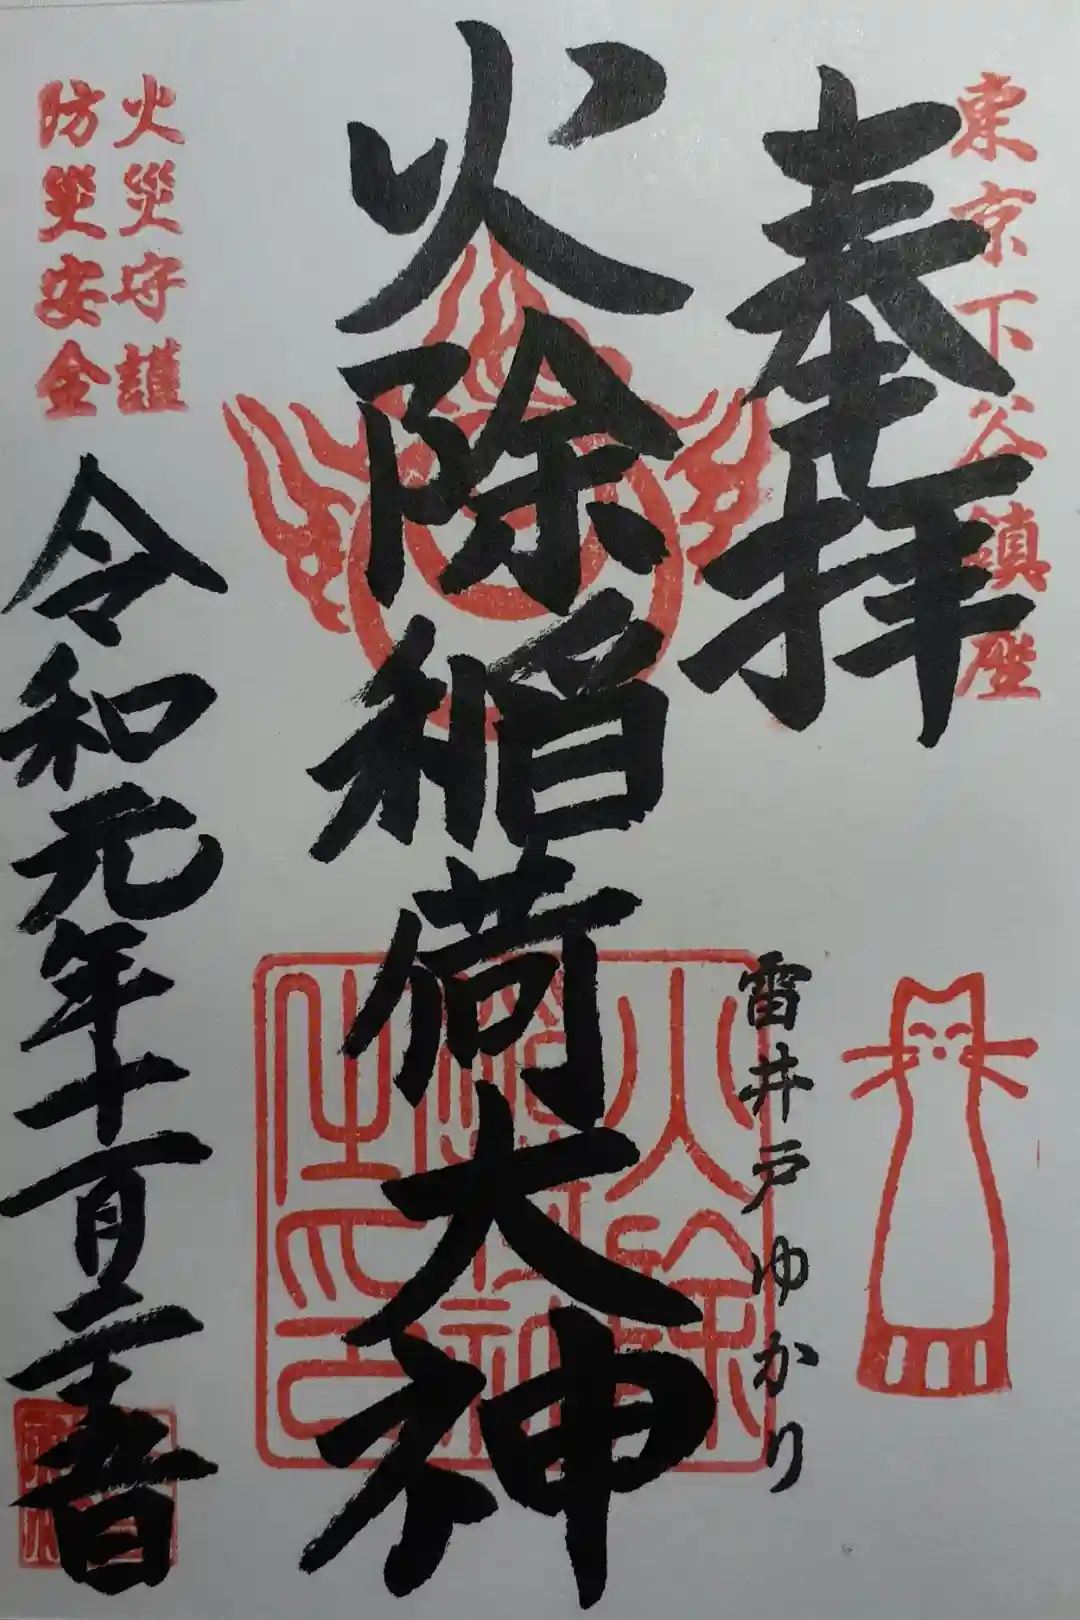 東京下谷鎮座
奉拝
雷井戸ゆかり
火除稲荷大神
火災守護
防災安全
令和元年十一月二十五日